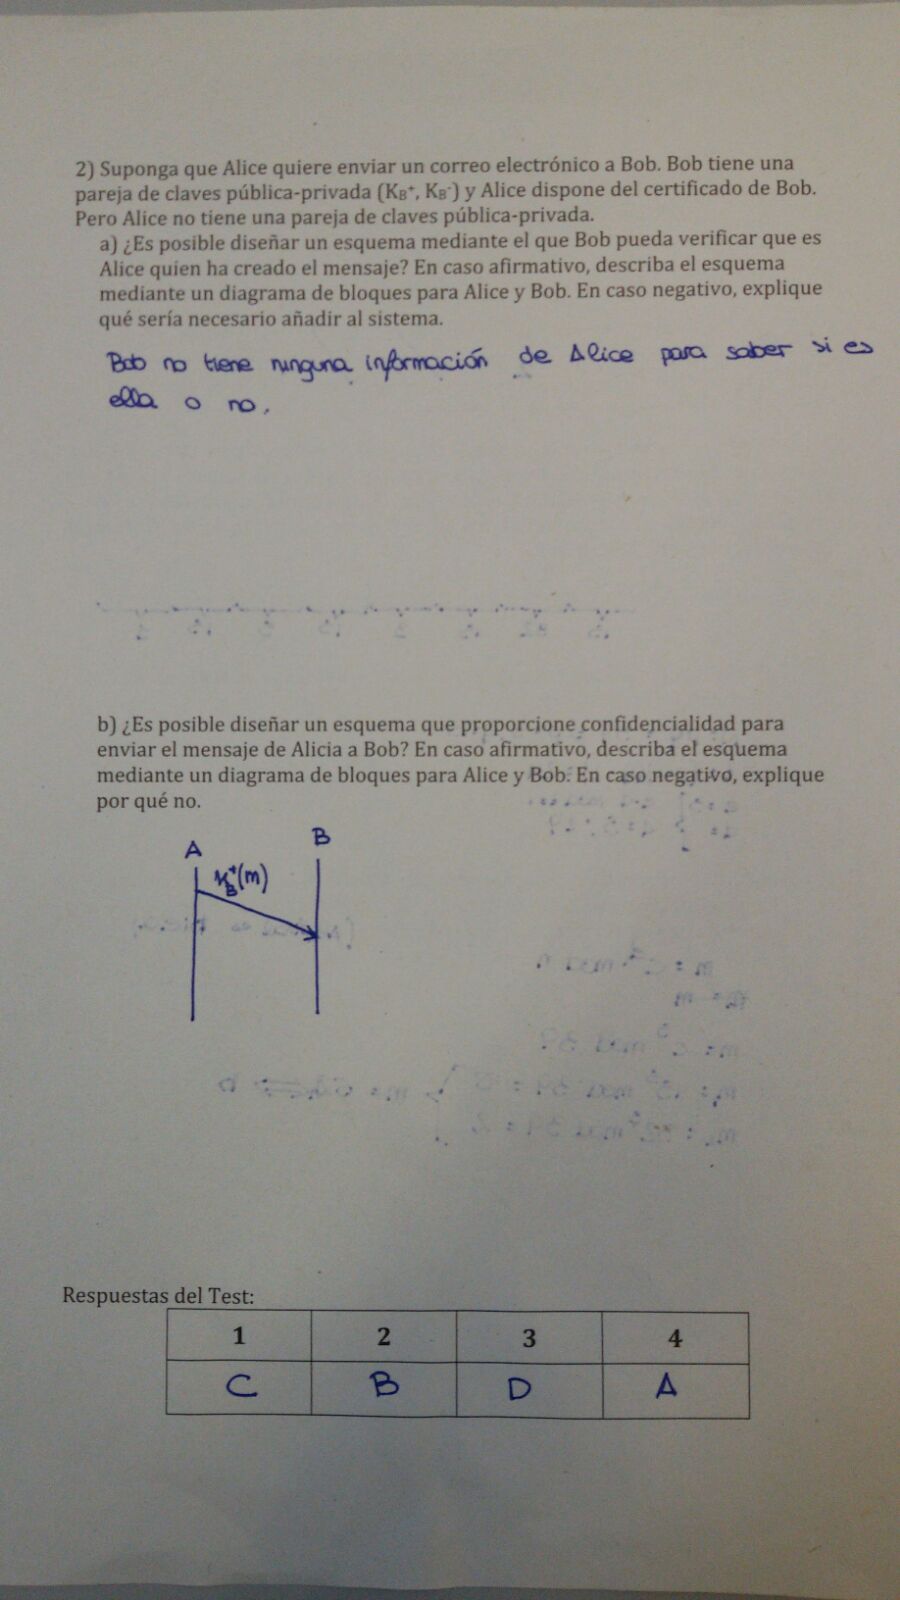 2) Suponga que Alice quiere enviar un correo electrónico a Bob. Bob tiene una
pareja de claves pública-privada (K_B⁺, K_B⁻) y Alice dispone del certificado de Bob.
Pero Alice no tiene una pareja de claves pública-privada.
a) ¿Es posible diseñar un esquema mediante el que Bob pueda verificar que es
Alice quien ha creado el mensaje? En caso afirmativo, describa el esquema
mediante un diagrama de bloques para Alice y Bob. En caso negativo, explique
qué sería necesario añadir al sistema.
Bob no tiene ninguna información de Alice para saber si es
ella o no.
b) ¿Es posible diseñar un esquema que proporcione confidencialidad para
enviar el mensaje de Alicia a Bob? En caso afirmativo, describa el esquema
mediante un diagrama de bloques para Alice y Bob. En caso negativo, explique
por qué no.
A B
K_B⁺(m)
Respuestas del Test:
1 2 3 4
C B D A